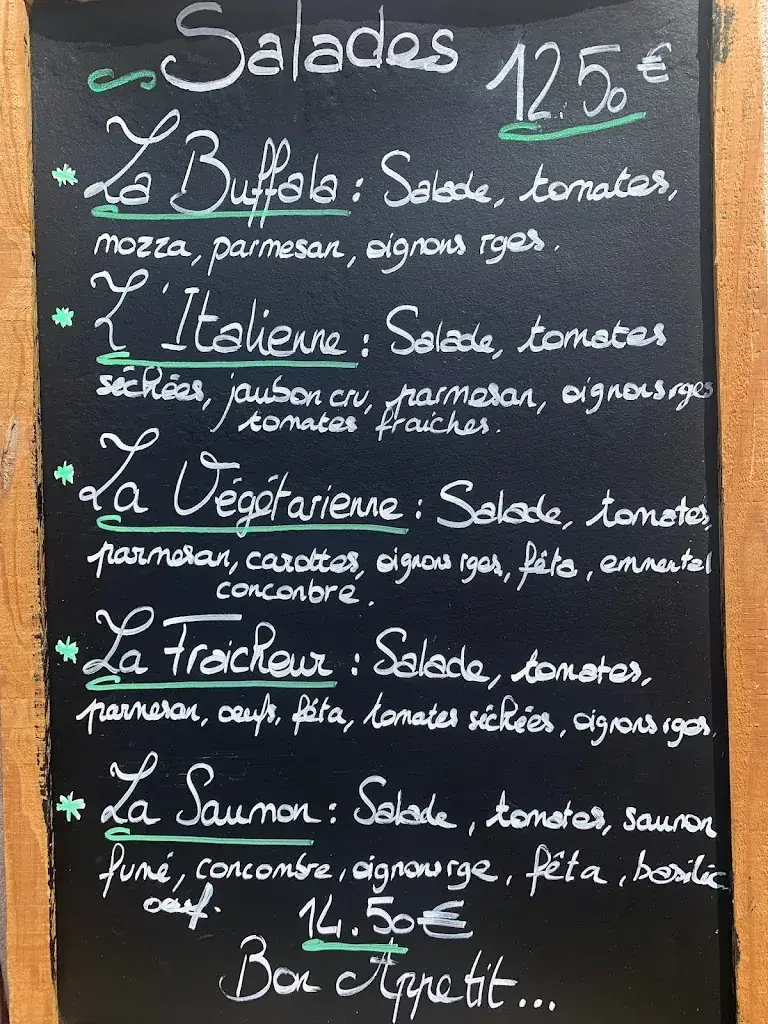 Salades 12.50€
* La Buffala : Salade, tomates,
mozza, parmesan, oignons rges.
* L'Italienne : Salade, tomates
séchées, jaubon cru, parmesan, oignons rges
tomates fraiches.
* La Végétarienne : Salade, tomates,
parmesan, carottes, oignons rges, fêta, emmental
conconbre.
* La Fraicheur : Salade, tomates,
parmesan, oeufs, fêta, tomates séchées, oignons rges.
* La Saumon : Salade, tomates, saumon
fumé, concombre, oignon rge, fêta, basilic
oeuf. 14.50€
Bon Appetit...